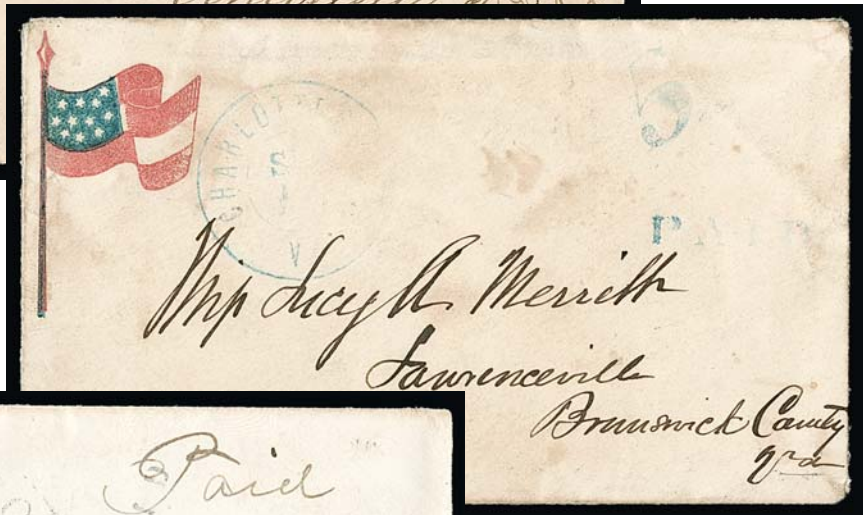 CHARLOTTE
V
5
PAID
Miss Lucy A Merritt
Lawrenceville
Brunswick County
Va
Paid